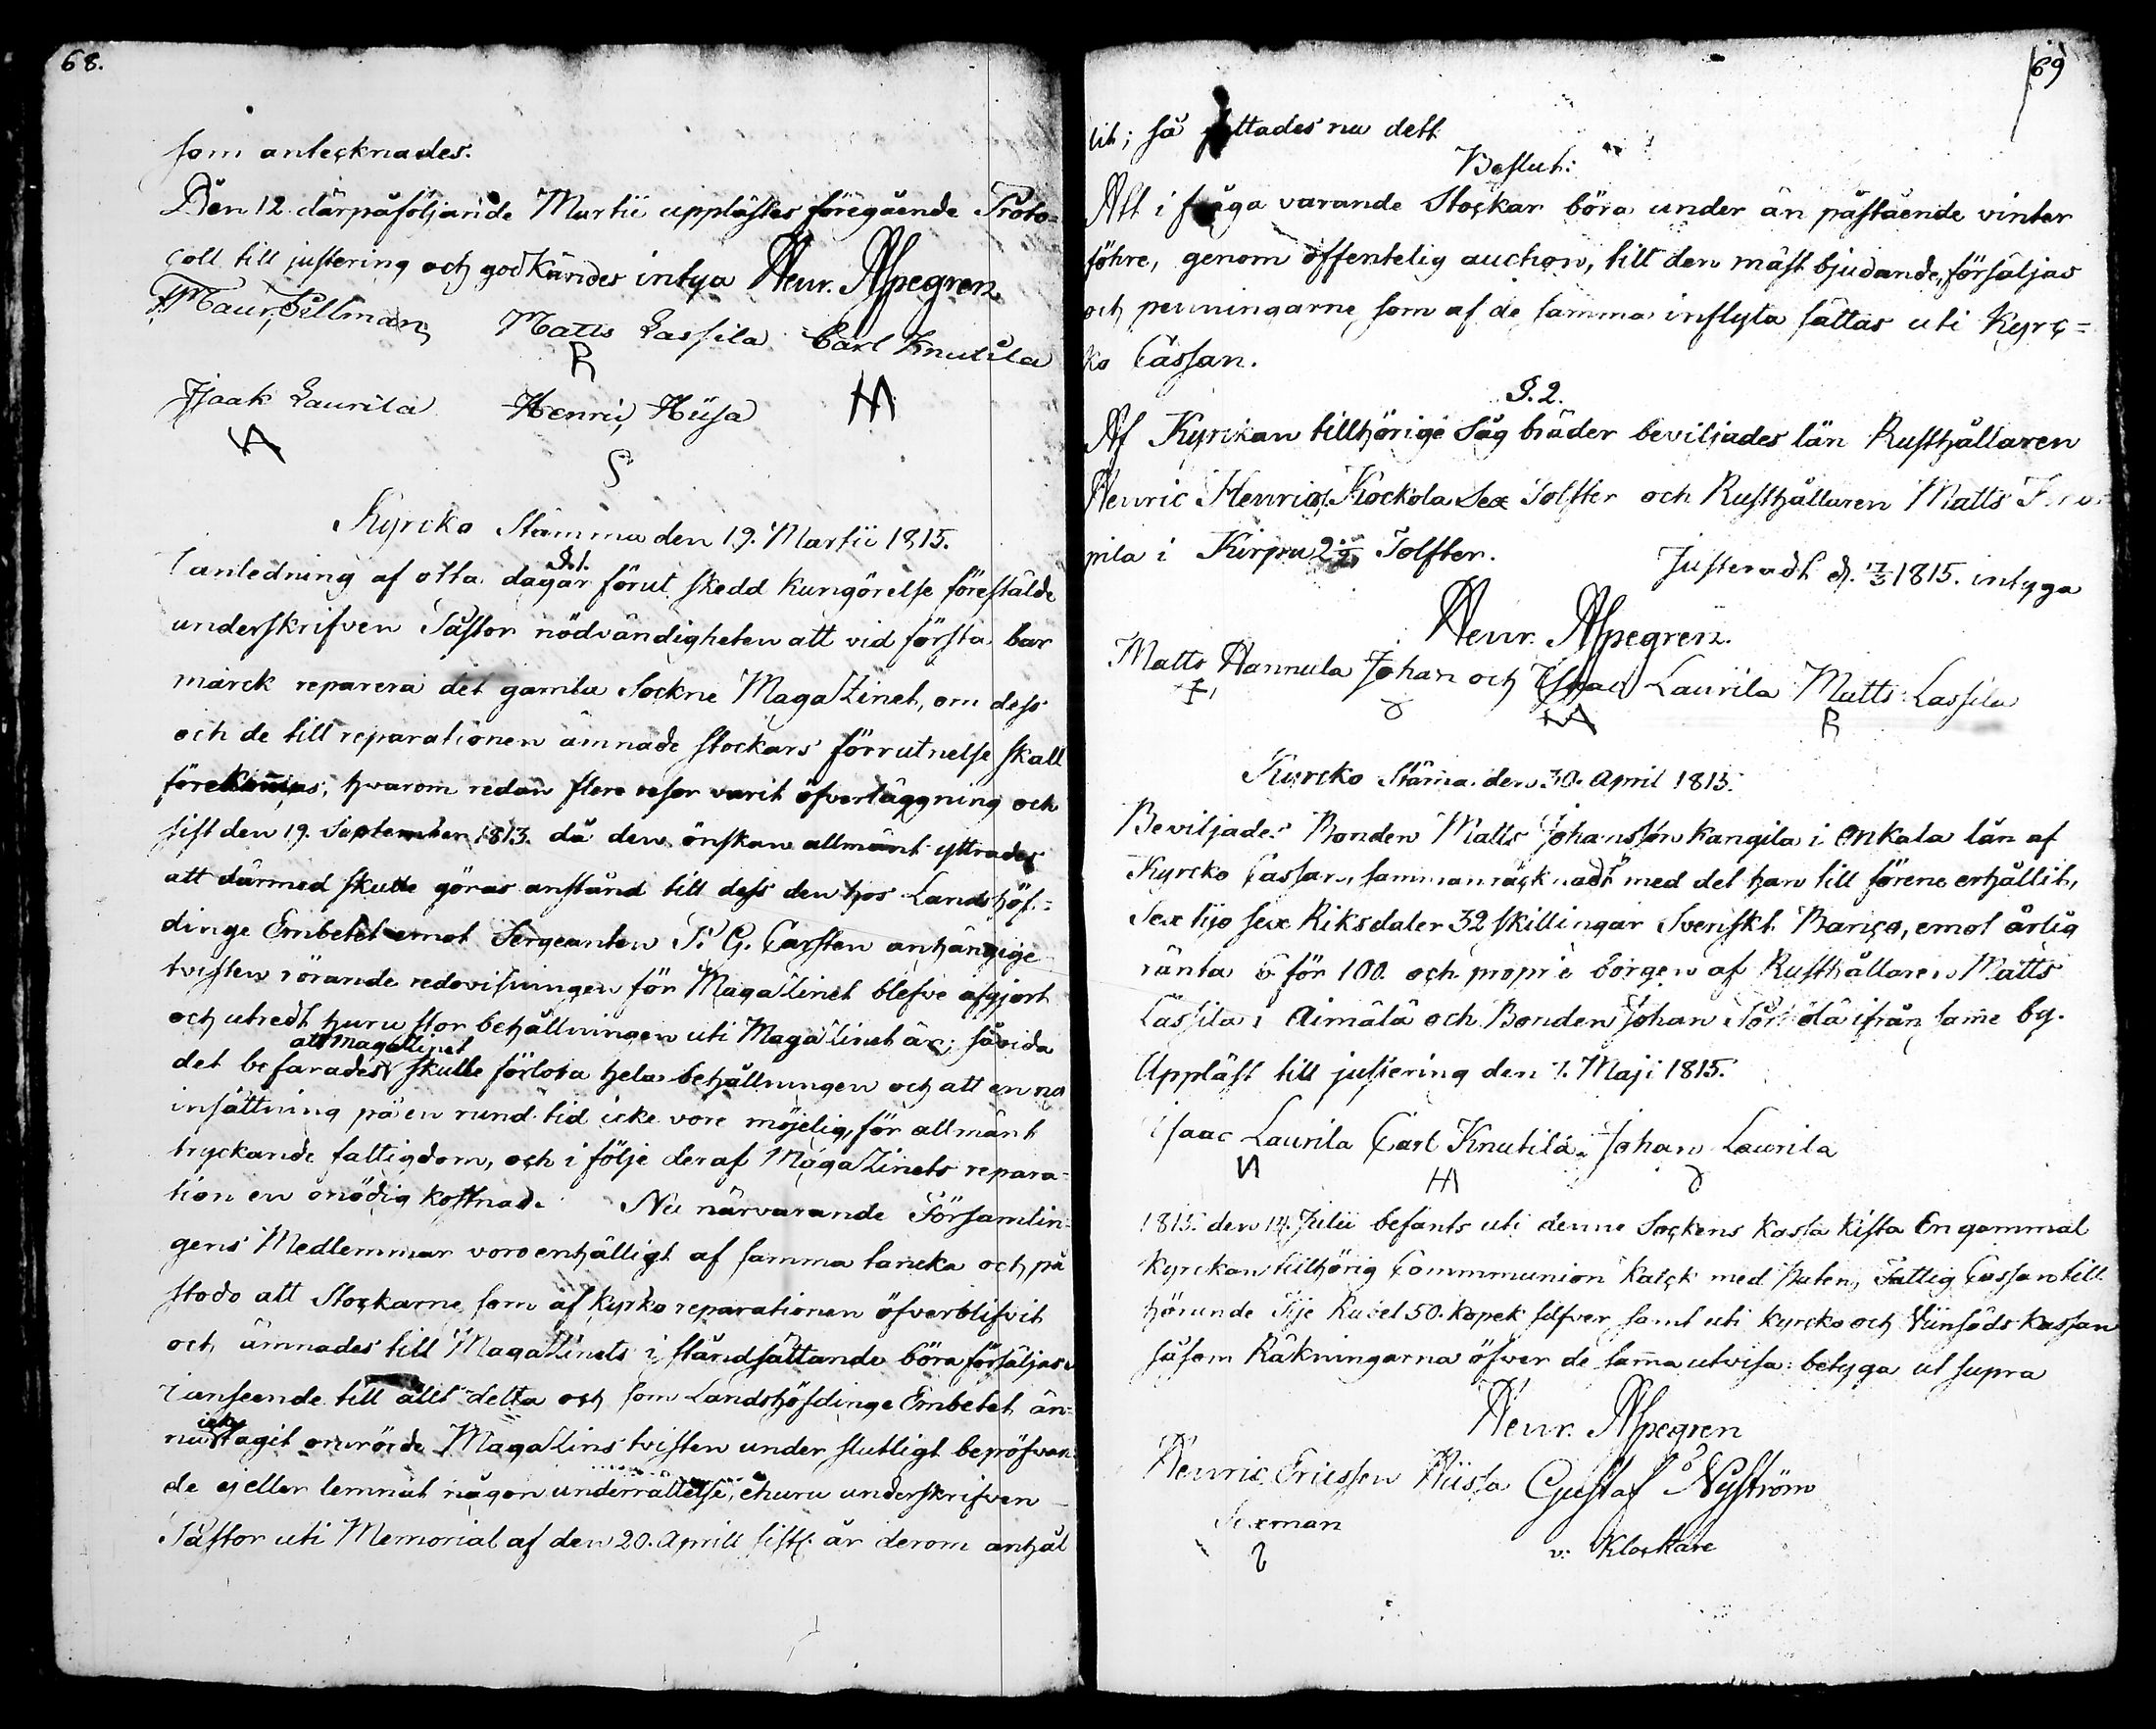 68.
som antecknades.
Den 12 därpåföljande Martii upplästes föregående Proto-
coll till justering och godkändes intyga Henr. Alpegren
F. Maur. Pillman Matts Lassila Carl Knutila
Isaak Laurila Henric Hiisa
Kyrcko Stämma den 19. Martii 1815.
§.1.
I anledning af otta dagar förut skedd kungörelse förestälde
underskrifven Pastor nödvändigheten att vid första bar
marck reparera det gamla Sockne Magazinet, om dess
och de till reparationen ämnade stockars förrutnelse skall
förekommas, hvarom redan flere resor varit öfverläggning och
sist den 19. September 1813. då den önskan allmänt yttrades
att därmed skulle göras anstånd till dess den hos Landshöf-
dinge Embetet emot Sergeanten P. G. Carsten anhängige
tvisten rörande redovisningen för Magazinet blefve afgjort
och utredt huru stor behållningen uti Magazinet är; såvida
det befarades att Magazinet skulle förlora hela behållningen och att en ny
insättning på en rund tid icke vore möjelig, för allmänt
tryckande fattigdom, och i följe deraf Magazinets repara-
tion en onödig kostnad. Nu närvarande Församlin-
gens Medlemmar voro enhälligt af samma tancka och på
stodo att Stockarne som af kyrko reparationen öfverblifvit
och ämnades till Magazinets i ståndsättande böra försäljas.
I anseende till allt detta och som Landshöfdinge Embetet än-
nu icke tagit omrörde Magazins tvisten under slutligt bepröfvan-
de ej eller lemnat någon underrättelse, ehuru underskrifven
Pastor uti Memorial af den 20. Aprill sistl. år derom anhål
69
lit; så fattades nu dett
Beslut:
Att i fråga varande Stockar böra under än påstående vinter
föhre, genom offentelig auction, till den mäst bjudande, försäljas
och penningarne som af de samma inflyta sättas uti Kyrc-
ko Cassan.
§.2.
Af Kyrckan tillhörige Såg bräder beviljades lån Rusthållaren
Henric Henrics. Kockola Sex Tolfter och Rusthållaren Matts
pila i Kirpu 2 1/2 Tolfter.
Justeradt d. 17/3 1815. intyga
Henr. Alpegren.
Matts Hannula Johan och Isaac Laurila Matts Lassila
Kyrcko Stäma den 30. April 1815.
Beviljades Bonden Matts Johansson Kangila i Onkala lån af
Kyrcko Cassan, sammanräcknadt med det han till förene erhållit,
Sextijo sex Riksdaler 32 skillingar Svenskt Banco, emot årlig
ränta 6 för 100. och proprie borgen af Rusthållaren Matts
Lassila i Aimälä och Bonden Johan ifrån same by.
Uppläst till justering den 7. Maji 1815.
Isaac Laurila Carl Knutila Johan Laurila
1815. den 14. Julii befants uti denne Sockens Kassa Kista En gammal
Kyrckan tillhörig Commmunion Kalck med Paten, Fattig Cassan till
hörande Tije Rubel 50. kopek silfver samt uti kyrcko och Viinsäds Kassan
såsom Räkningarna öfver de sama utvisa: betyga ut supra
Henr. Alpegren
Henric Ericsson Hiissa Gustaf Nyström
Sexman v. Klockare